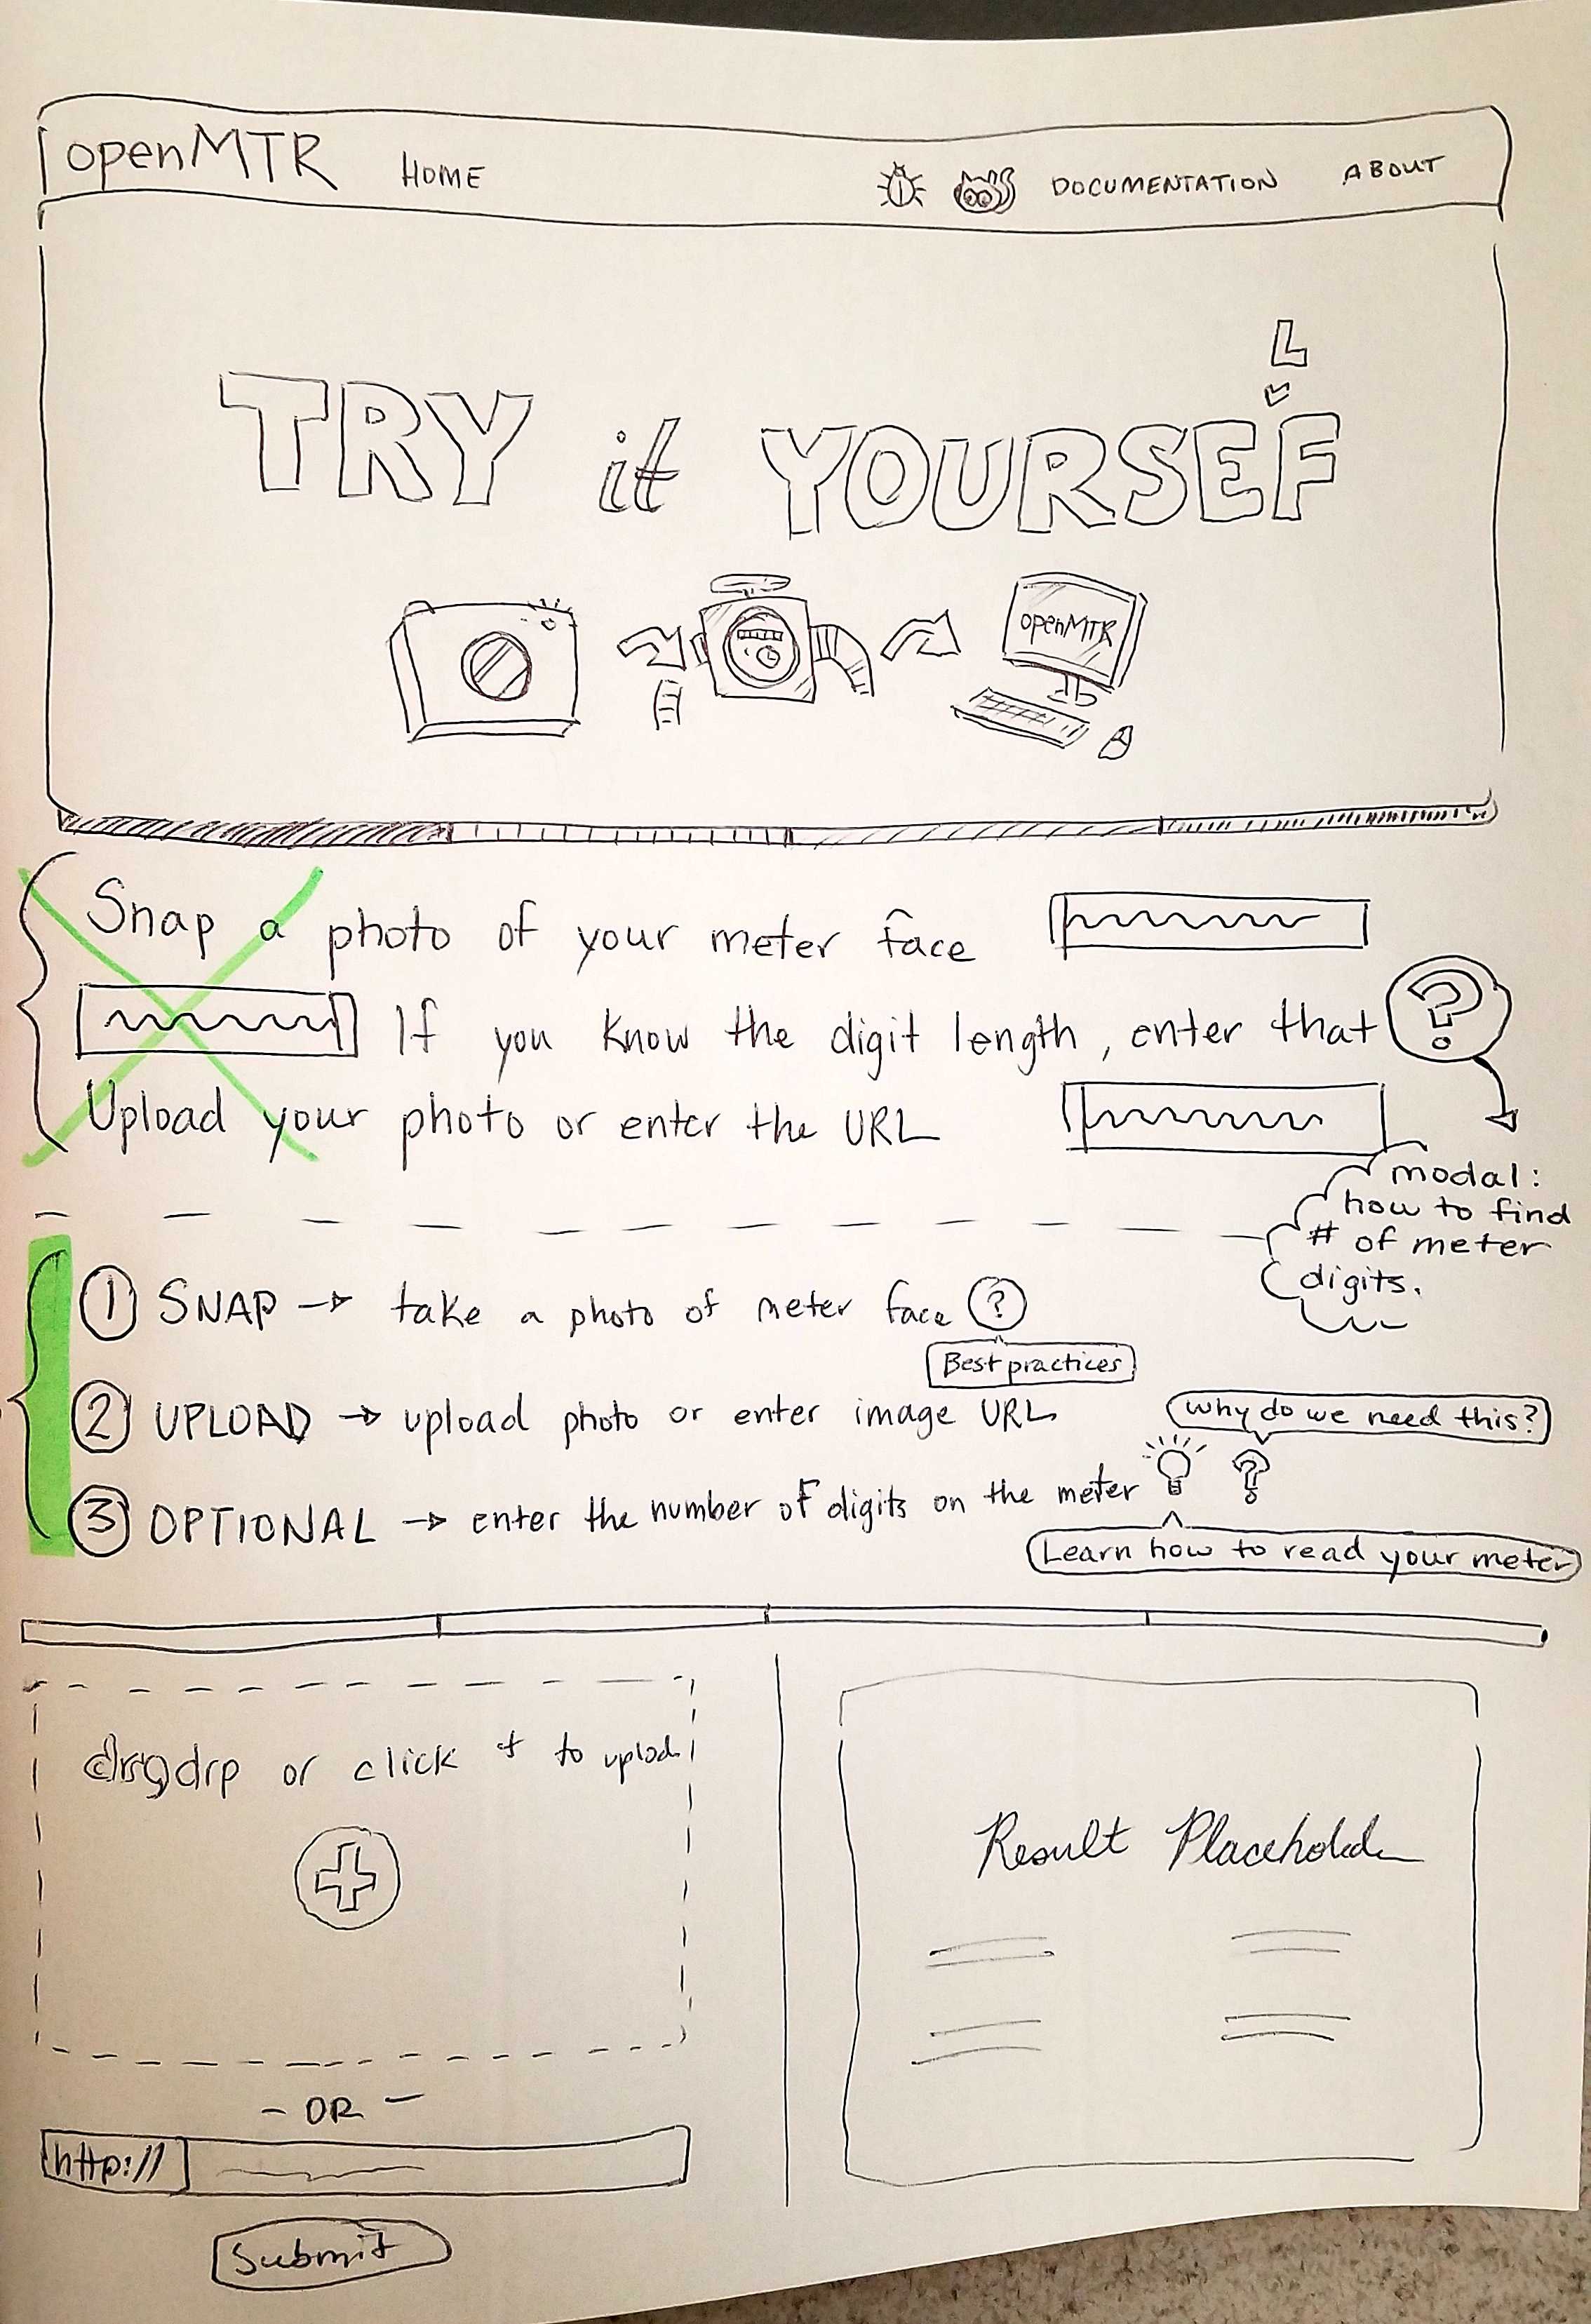 openMTR HOME DOCUMENTATION ABOUT
L
TRY it YOURSEF
openMTR
Snap a photo of your meter face
If you know the digit length, enter that ?
Upload your photo or enter the URL
modal:
how to find
# of meter
digits.
1 SNAP → take a photo of meter face ?
Best practices
2 UPLOAD → upload photo or enter image URL
why do we need this?
3 OPTIONAL → enter the number of digits on the meter ?
Learn how to read your meter
or click + to upload
+
Result Placeholder
- OR -
http://
Submit